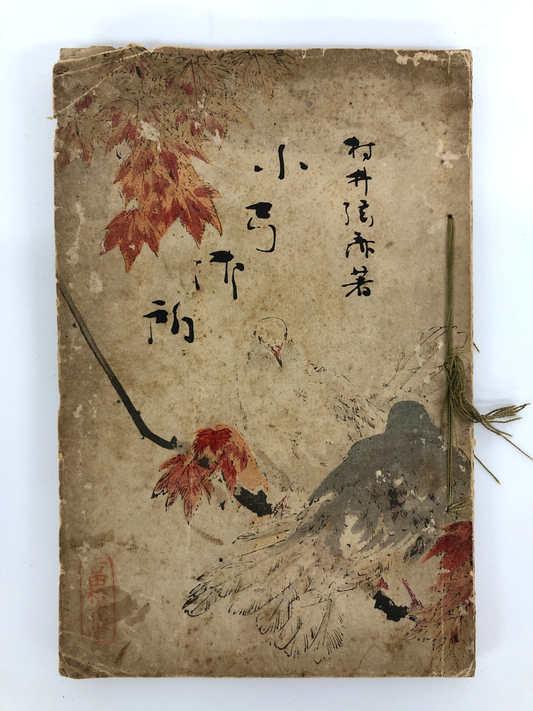 村井弦斎著
小弓御所